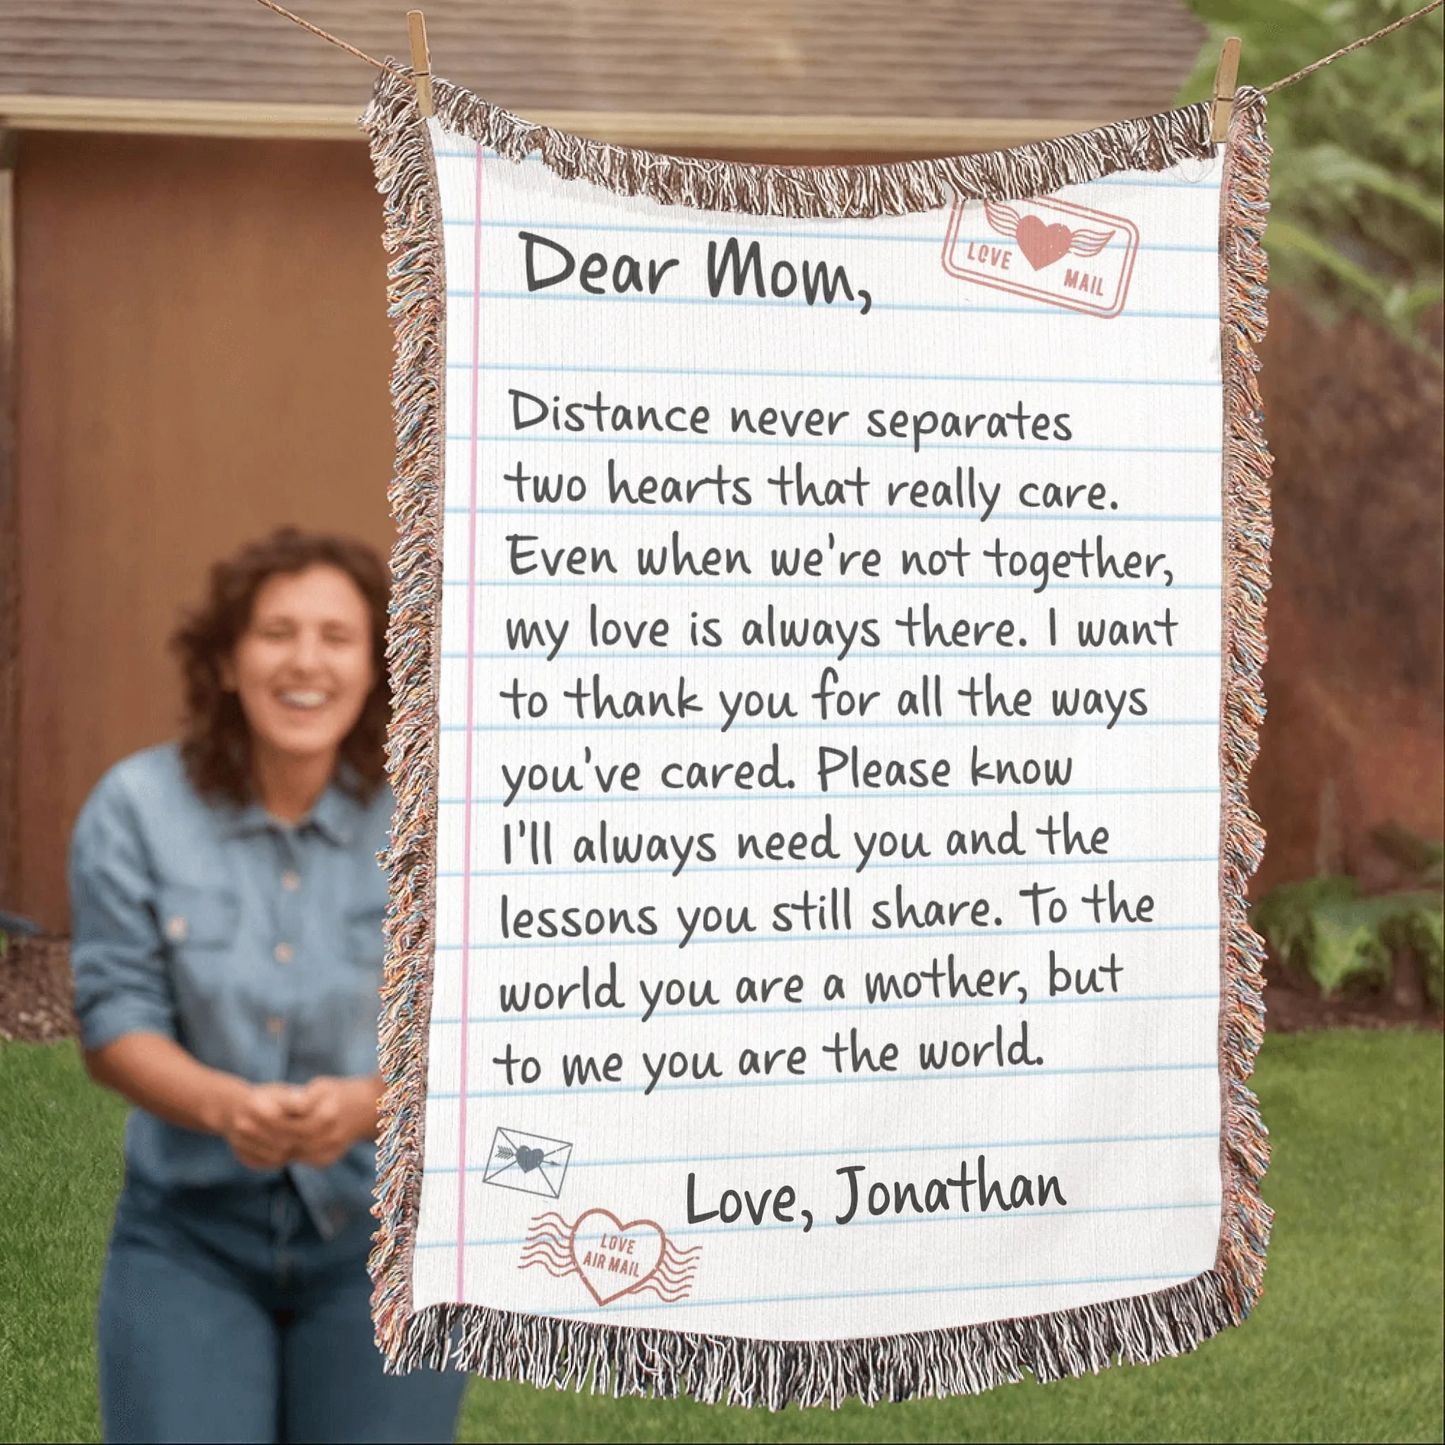 LOVE MAIL
Dear Mom,
Distance never separates
two hearts that really care.
Even when we're not together,
my love is always there. I want
to thank you for all the ways
you've cared. Please know
I'll always need you and the
lessons you still share. To the
world you are a mother, but
to me you are the world.
Love, Jonathan
LOVE
AIR MAIL